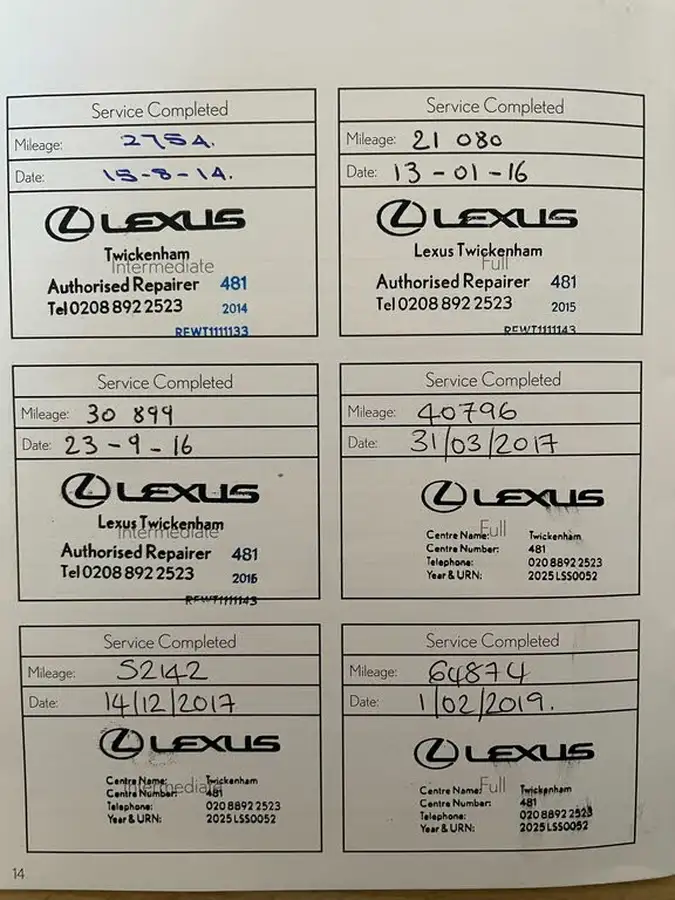 Service Completed
Mileage: 2754.
Date: 15-8-14.
LEXUS
Twickenham
Intermediate
Authorised Repairer 481
Tel 0208 892 2523 2014
REWT1111133
Service Completed
Mileage: 21 080
Date: 13-01-16
LEXUS
Lexus Twickenham
Full
Authorised Repairer 481
Tel 0208 892 2523 2015
REWT1111143
Service Completed
Mileage: 30 899
Date: 23-9-16
LEXUS
Lexus Twickenham
Intermediate
Authorised Repairer 481
Tel 0208 892 2523 2016
REWT1111143
Service Completed
Mileage: 40796
Date: 31/03/2017
LEXUS
Full
Centre Name: Twickenham
Centre Number: 481
Telephone: 020 8892 2523
Year & URN: 2025 LSS0052
Service Completed
Mileage: 52142
Date: 14/12/2017
LEXUS
Centre Name: Twickenham
Intermediate
Centre Number: 481
Telephone: 020 8892 2523
Year & URN: 2025 LSS0052
Service Completed
Mileage: 64874
Date: 1/02/2019.
LEXUS
Full
Centre Name: Twickenham
Centre Number: 481
Telephone: 020 8892 2523
Year & URN: 2025 LSS0052
14